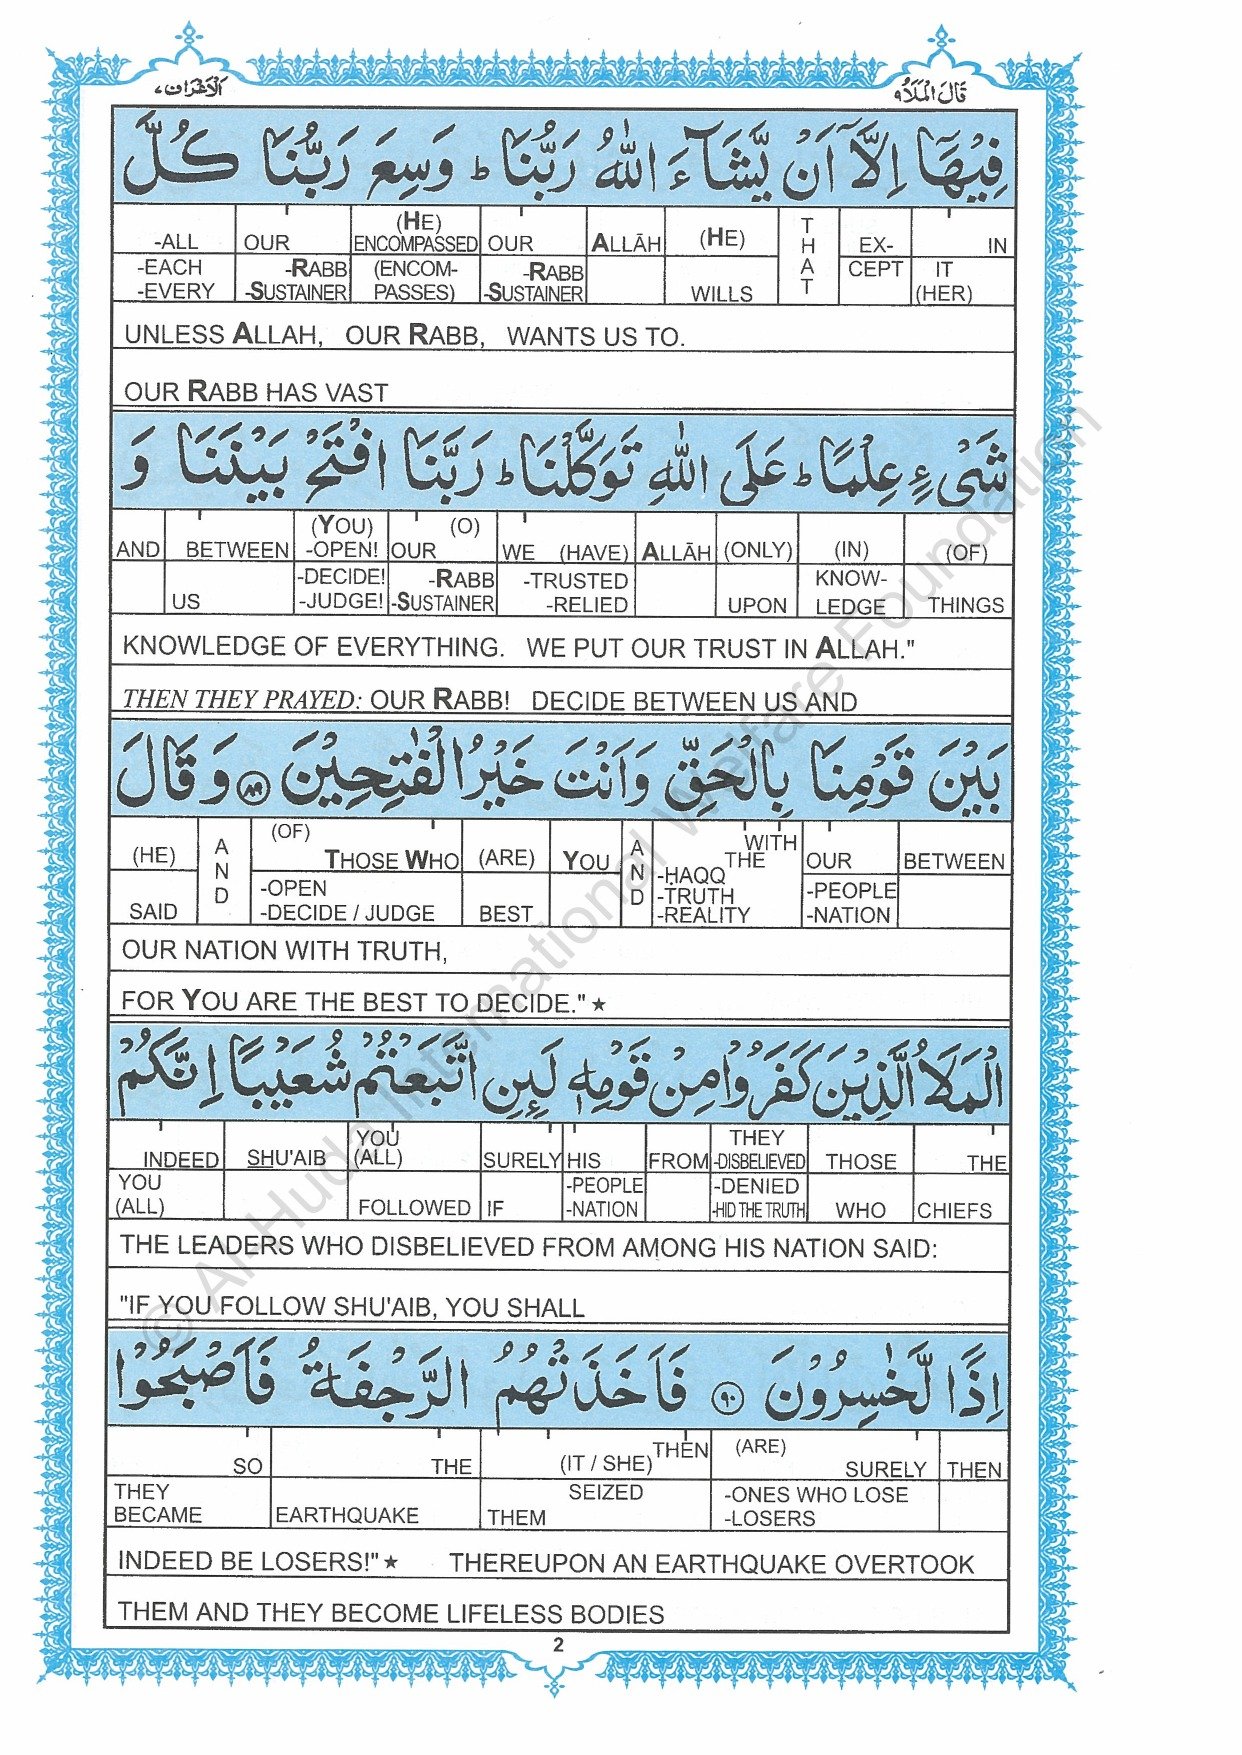 الاعراف ٧
قال الملا ٩
فِيْهَاۤ اِلَّاۤ اَنْ يَّشَآءَ اللّٰهُ رَبُّنَا ؕ وَسِعَ رَبُّنَا كُلَّ
-ALL OUR (HE) ENCOMPASSED OUR ALLĀH (HE) THAT EX- IN
-EACH -EVERY -RABB -SUSTAINER (ENCOM- PASSES) -RABB -SUSTAINER WILLS CEPT IT (HER)
UNLESS ALLAH, OUR RABB, WANTS US TO.
OUR RABB HAS VAST
شَیْءٍ عِلْمًا ؕ عَلَی اللّٰهِ تَوَكَّلْنَا ؕ رَبَّنَا افْتَحْ بَيْنَنَا وَ
AND BETWEEN (YOU) -OPEN! OUR (O) WE (HAVE) ALLĀH (ONLY) (IN) (OF)
US -DECIDE! -JUDGE! -RABB -SUSTAINER -TRUSTED -RELIED UPON KNOW- LEDGE THINGS
KNOWLEDGE OF EVERYTHING. WE PUT OUR TRUST IN ALLAH."
THEN THEY PRAYED: OUR RABB! DECIDE BETWEEN US AND
بَيْنَ قَوْمِنَا بِالْحَقِّ وَاَنْتَ خَيْرُ الْفٰتِحِيْنَ ﴿٨٩﴾ وَقَالَ
(HE) AND (OF) THOSE WHO (ARE) YOU AND WITH THE OUR BETWEEN
SAID -OPEN -DECIDE / JUDGE BEST -ḤAQQ -TRUTH -REALITY -PEOPLE -NATION
OUR NATION WITH TRUTH,
FOR YOU ARE THE BEST TO DECIDE." ★
الْمَلَاُ الَّذِيْنَ كَفَرُوْا مِنْ قَوْمِهٖ لَئِنِ اتَّبَعْتُمْ شُعَيْبًا اِنَّكُمْ
INDEED SHU'AIB YOU (ALL) SURELY HIS FROM THEY -DISBELIEVED THOSE THE
YOU (ALL) FOLLOWED IF -PEOPLE -NATION -DENIED -HID THE TRUTH WHO CHIEFS
THE LEADERS WHO DISBELIEVED FROM AMONG HIS NATION SAID:
"IF YOU FOLLOW SHU'AIB, YOU SHALL
اِذًا لَّخٰسِرُوْنَ ﴿٩٠﴾ فَاَخَذَتْهُمُ الرَّجْفَةُ فَاَصْبَحُوْا
SO THE (IT / SHE) THEN (ARE) SURELY THEN
THEY BECAME EARTHQUAKE SEIZED THEM -ONES WHO LOSE -LOSERS
INDEED BE LOSERS!" ★ THEREUPON AN EARTHQUAKE OVERTOOK
THEM AND THEY BECOME LIFELESS BODIES
2
© Al-Huda International Welfare Foundation